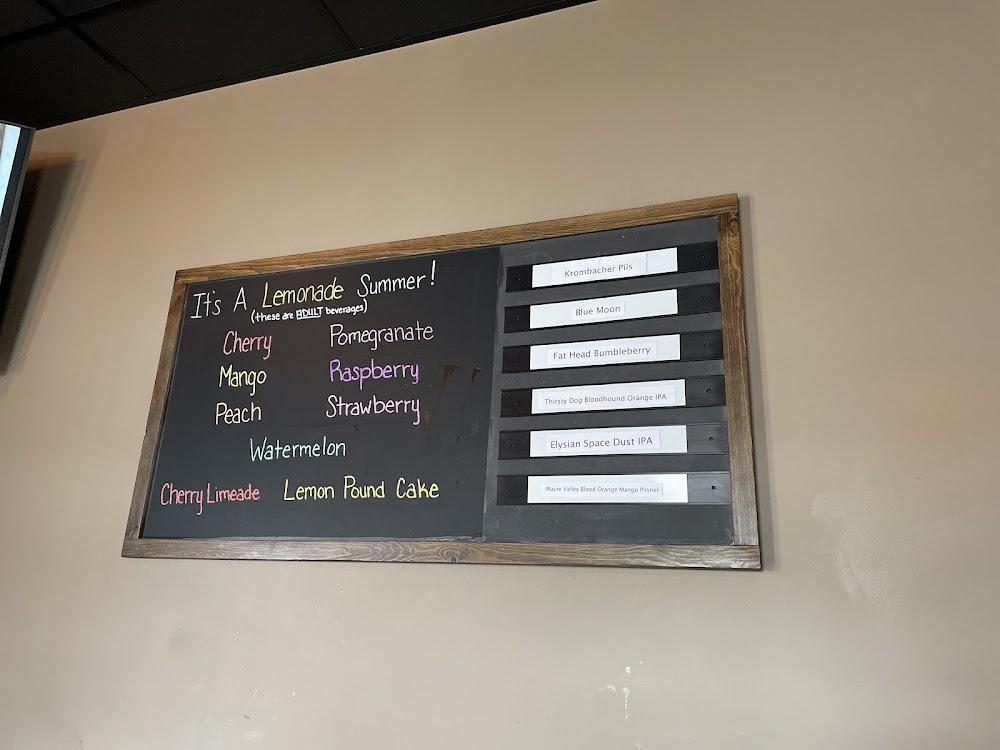 It's A Lemonade Summer!
(these are ADULT beverages)
Cherry
Pomegranate
Mango
Raspberry
Peach
Strawberry
Watermelon
Cherry Limeade
Lemon Pound Cake
Krombacher Pils
Blue Moon
Fat Head Bumbleberry
Thirsty Dog Bloodhound Orange IPA
Elysian Space Dust IPA
Maize Valley Blood Orange Mango Pilsner